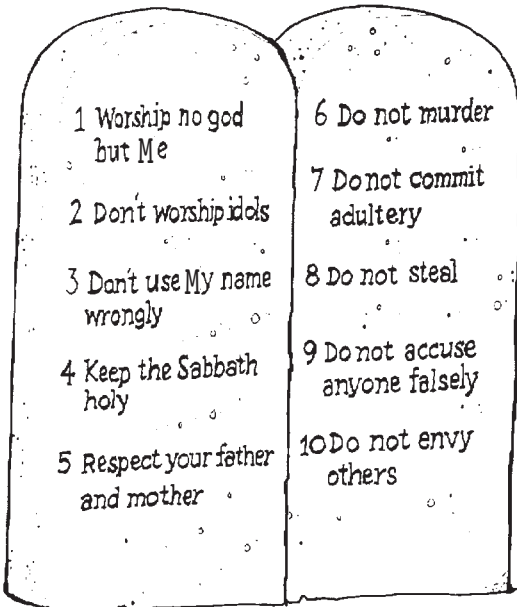 1 Worship no god
but Me
2 Don't worship idols
3 Don't use My name
wrongly
4 Keep the Sabbath
holy
5 Respect your father
and mother
6 Do not murder
7 Do not commit
adultery
8 Do not steal
9 Do not accuse
anyone falsely
10 Do not envy
others